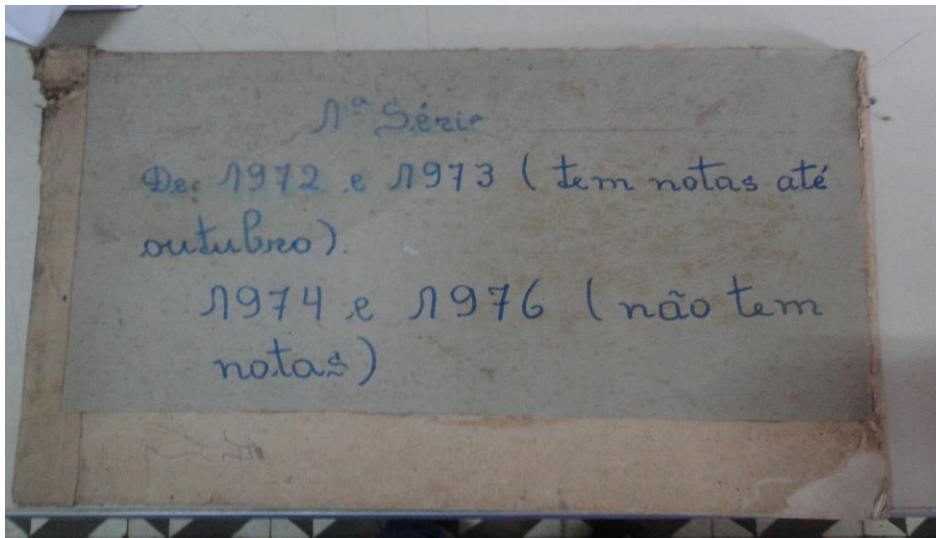 1ª Série
De: 1972 e 1973 (tem notas até
outubro).
1974 e 1976 (não tem
notas)